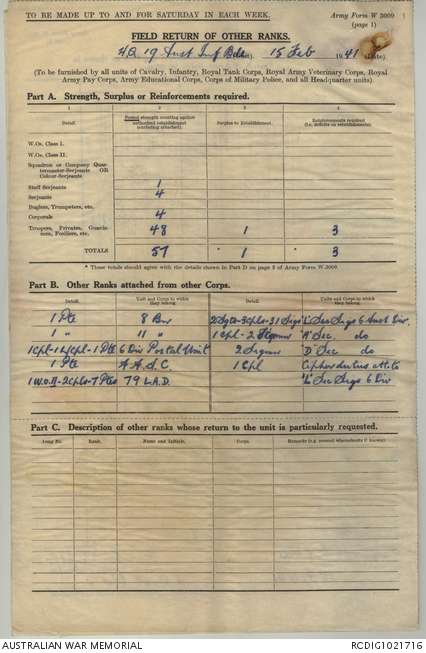 TO BE MADE UP TO AND FOR SATURDAY IN EACH WEEK.
Army Form W 3009
(page 1)
FIELD RETURN OF OTHER RANKS.
H.Q. 19 Aust Inf Bde 15 Feb 1941 (Date)
(To be furnished by all units of Cavalry, Infantry, Royal Tank Corps, Royal Army Veterinary Corps, Royal
Army Pay Corps, Army Educational Corps, Corps of Military Police, and all Headquarter units).
Part A. Strength, Surplus or Reinforcements required.
1 2 3 4
Detail. Posted strength counting against authorized establishment (excluding attached). Surplus to Establishment. Reinforcements required (i.e. deficits on establishment).
W.Os. Class I.
W.Os. Class II.
Squadron or Company Quartermaster-Serjeants OR Colour-Serjeants
Staff Serjeants 1
Serjeants 4
Buglers, Trumpeters, etc.
Corporals 4
Troopers, Privates, Guardsmen, Fusiliers, etc. 48 1 3
TOTALS 57 * 1 * 3
* These totals should agree with the details shown in Part D on page 2 of Army Form W.3009.
Part B. Other Ranks attached from other Corps.
Detail. Unit and Corps to which they belong Detail. Unit and Corps to which they belong
1 Pte 8 Bn 2 Sgts-3 Cpls-31 Sigs "L" Sec Sigs 6 Aust Div.
1 " 11 " 1 Cpl-2 "A" Sec. do
1 Cpl-1 L/Cpl-1 Pte 6 Div Postal Unit 2 Sigmn "D" Sec do
1 Pte A.A.S.C. 1 Cpl Cipher duties att to
1 W.O.II-2 Cpls-7 Ptes 79 L.A.D. "L" Sec Sigs 6 Div
Part C. Description of other ranks whose return to the unit is particularly requested.
Army No. Rank. Name and Initials. Corps. Remarks (e.g. present whereabouts if known)
AUSTRALIAN WAR MEMORIAL
RCDIG1021716